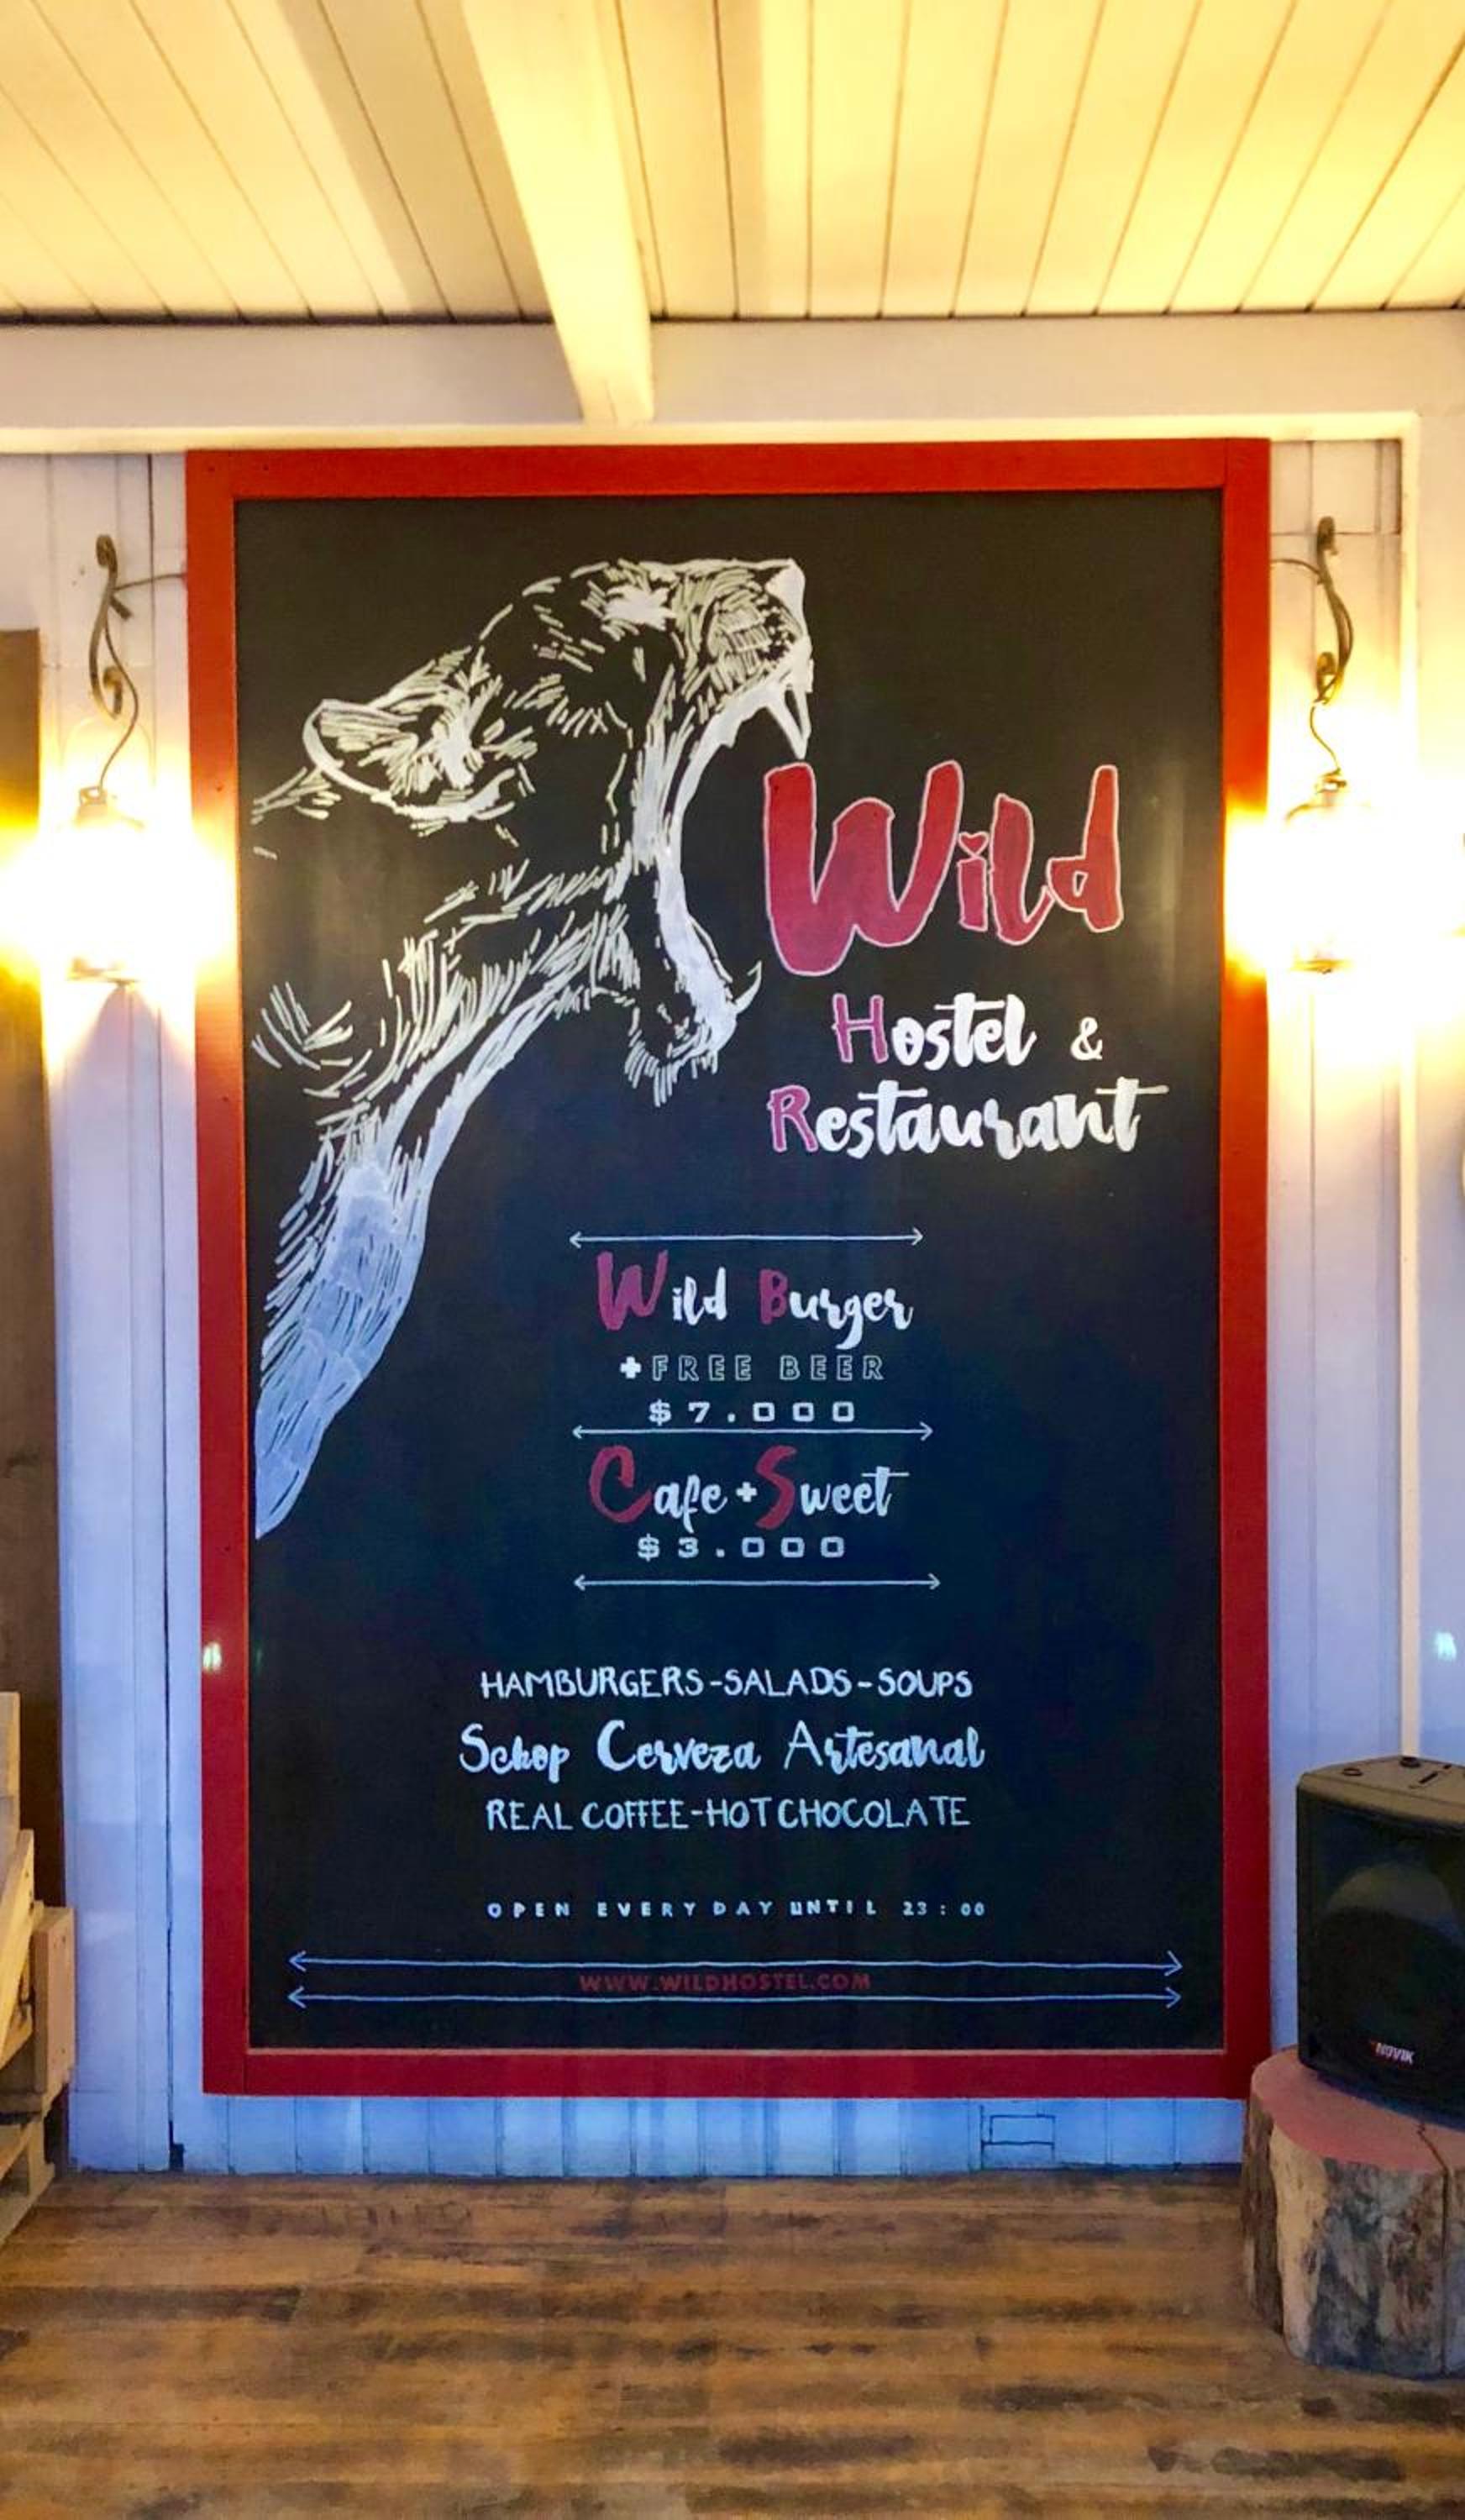 Wild
Hostel &
Restaurant
Wild Burger
+FREE BEER
$7.000
Cafe+Sweet
$3.000
HAMBURGERS-SALADS-SOUPS
Schop Cerveza Artesanal
REAL COFFEE-HOT CHOCOLATE
OPEN EVERY DAY UNTIL 23:00
WWW.WILDHOSTEL.COM
NOVIK